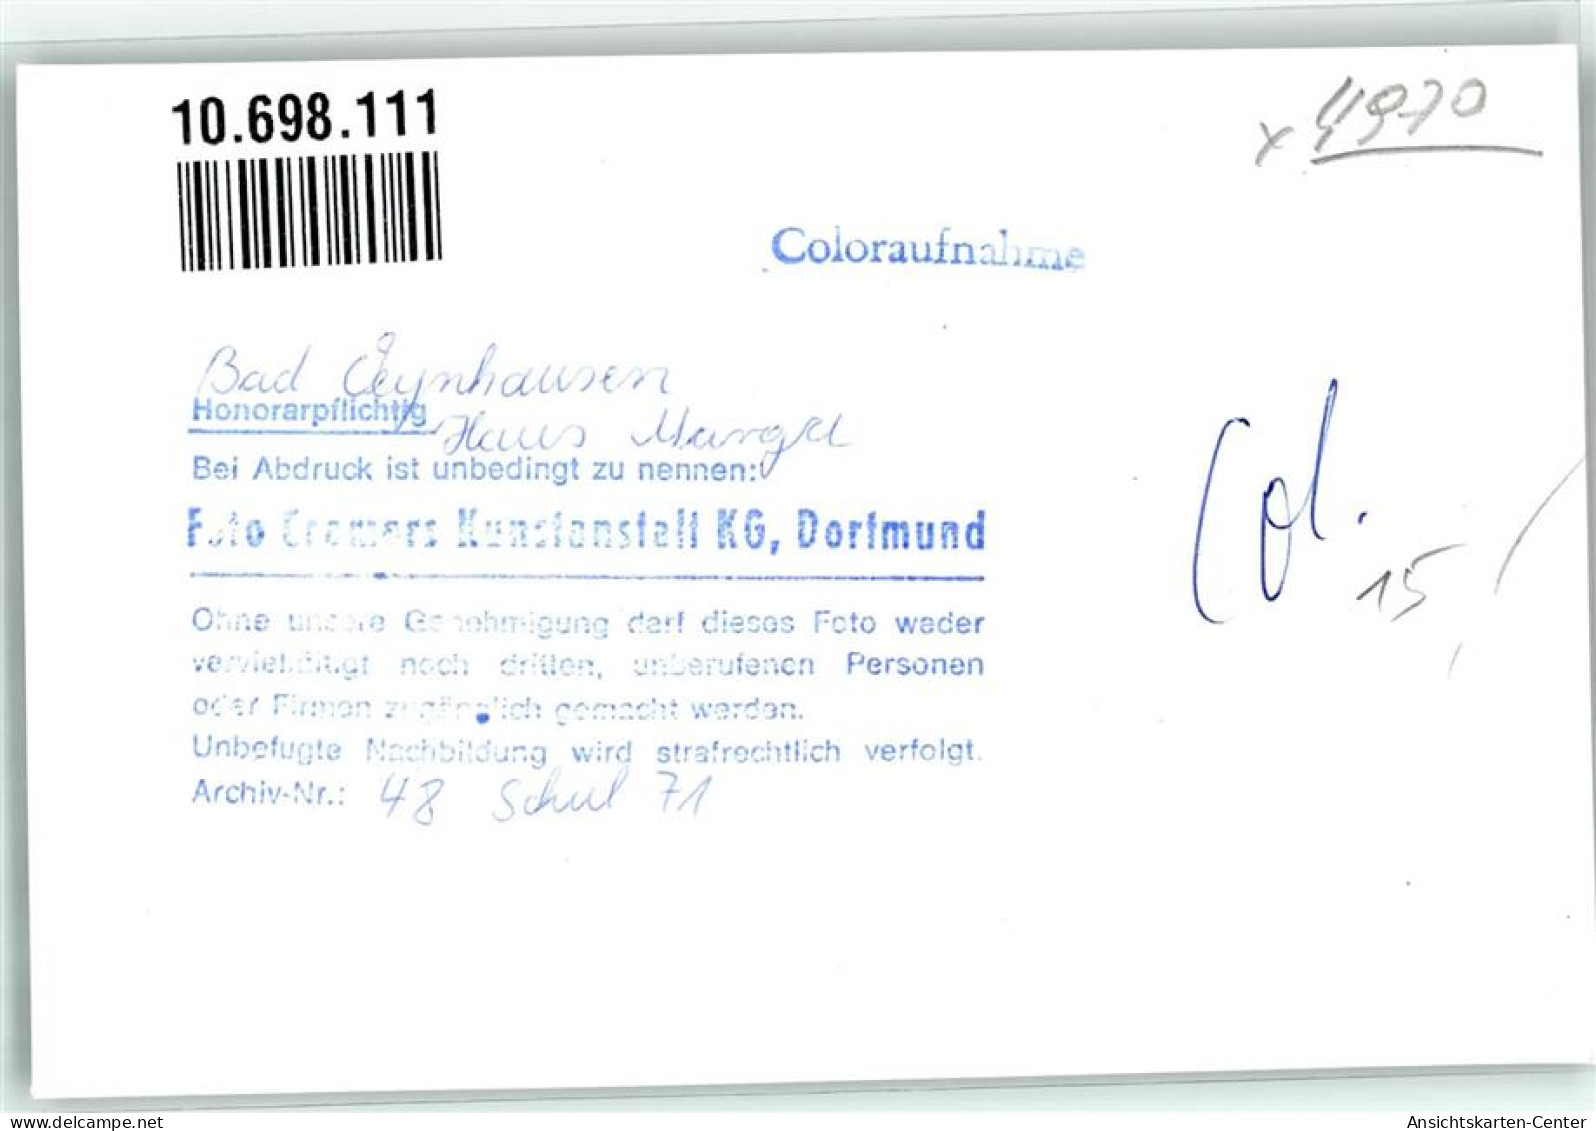 10.698.111
x 4970
Coloraufnahme
Bad Oeynhausen
Honorarpflichtig
Haus
Bei Abdruck ist unbedingt zu nennen:
Foto Cramers Kunstanstalt KG, Dortmund
Col.
15
Ohne unsere Genehmigung darf dieses Foto weder
vervielfältigt noch dritten, unberufenen Personen
oder Firmen zugänglich gemacht werden.
Unbefugte Nachbildung wird strafrechtlich verfolgt.
Archiv-Nr.: 48 Schul 71
www.delcampe.net
Ansichtskarten-Center